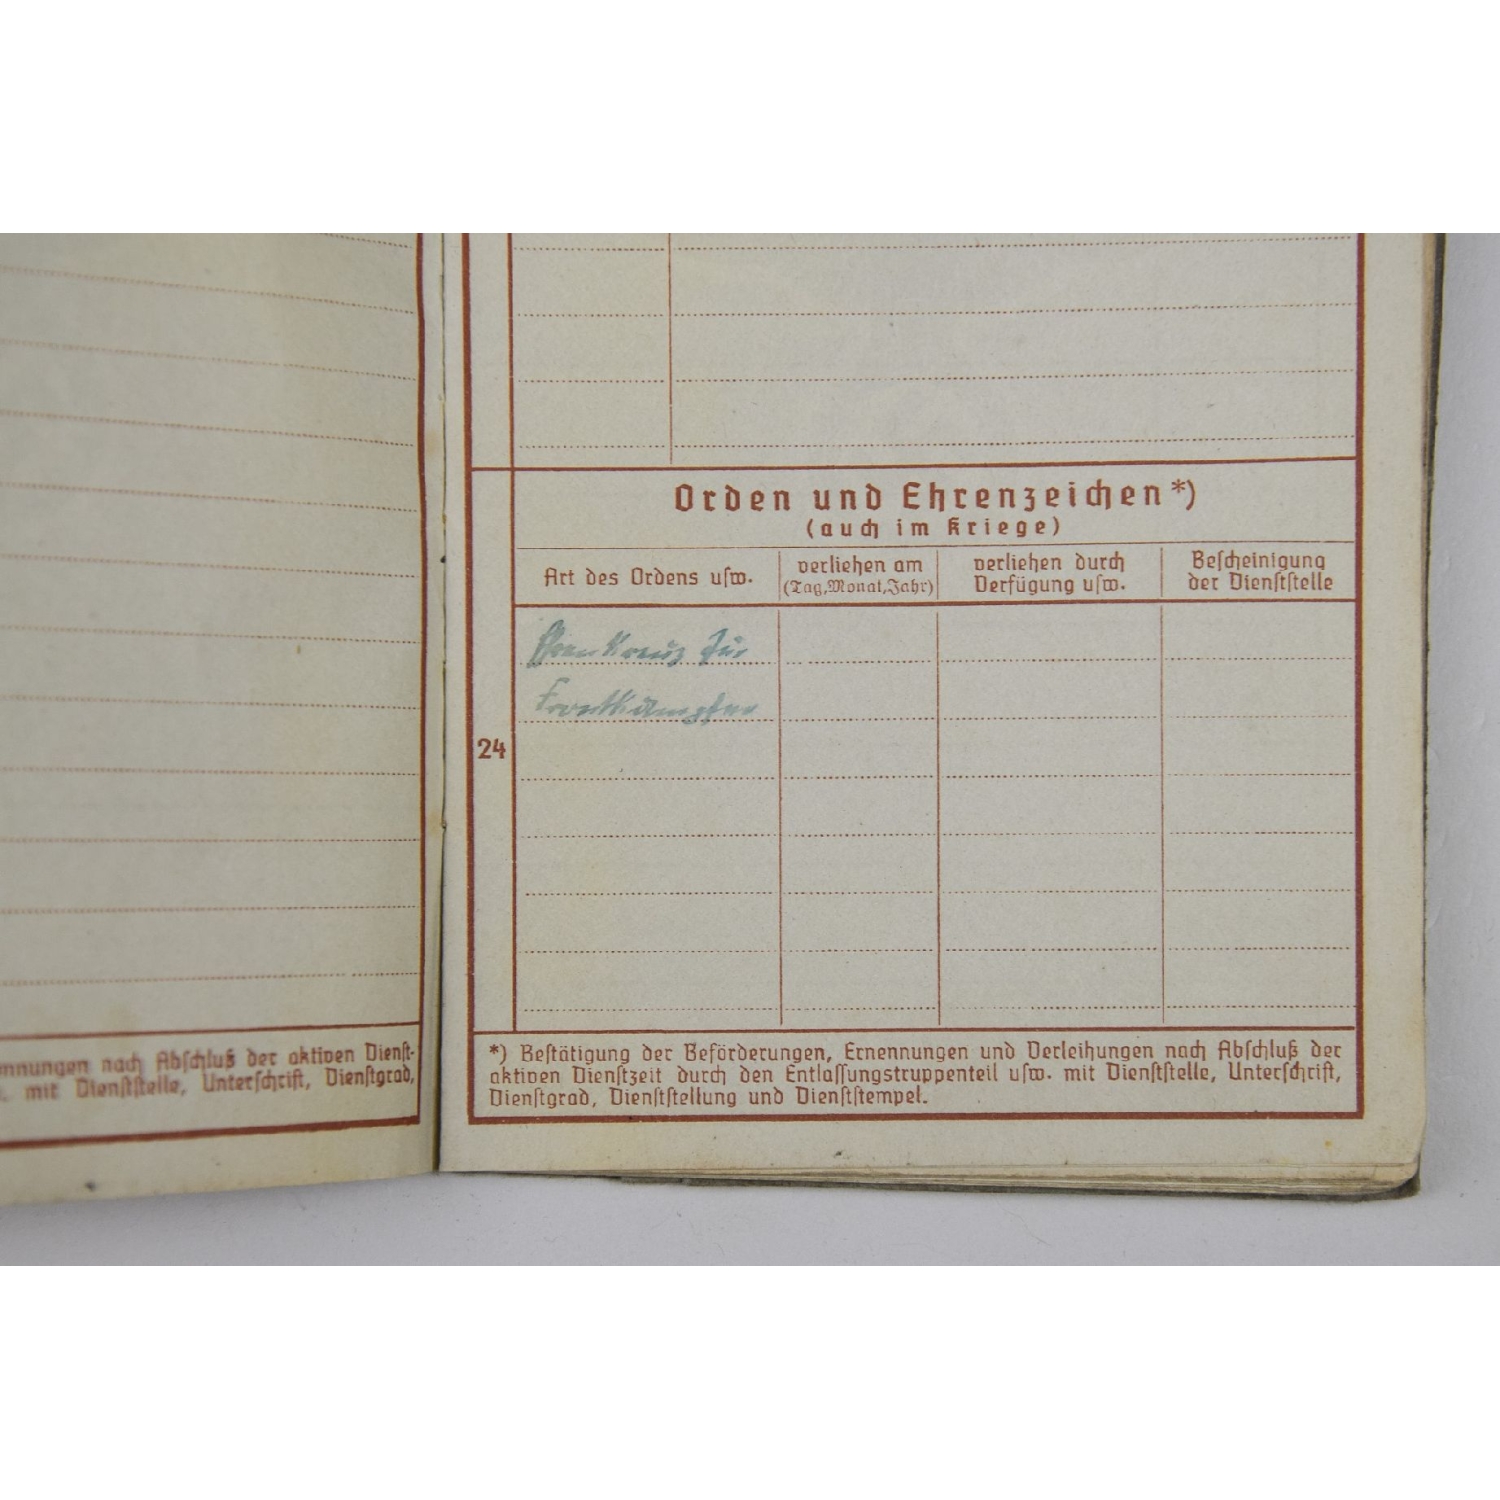 nnungen nach Abschluß der aktiven Dienst-
mit Dienststelle, Unterschrift, Dienstgrad,
Orden und Ehrenzeichen*)
(auch im Kriege)
Art des Ordens usw.
verliehen am
(Tag, Monat, Jahr)
verliehen durch
Verfügung usw.
Bescheinigung
der Dienststelle
24
Ehrenkreuz für
Frontkämpfer
*) Bestätigung der Beförderungen, Ernennungen und Verleihungen nach Abschluß der
aktiven Dienstzeit durch den Entlassungstruppenteil usw. mit Dienststelle, Unterschrift,
Dienstgrad, Dienststellung und Dienststempel.